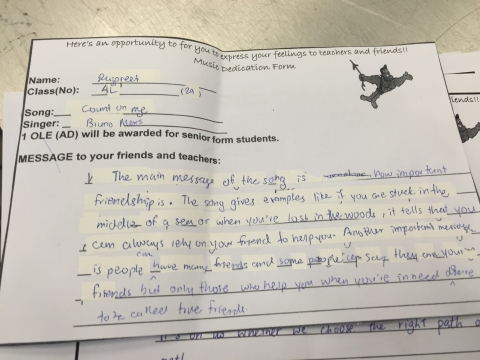 Here's an opportunity to for you to express your feelings to teachers and friends!!
Music Dedication Form
Name: Ruspreet
Class(No): 4L (20)
Song: Count on me
Singer: Bruno Mars
1 OLE (AD) will be awarded for senior form students.
MESSAGE to your friends and teachers:
The main message of the song is how important
friendship is. The song gives examples like if you are stuck in the
middle of a sea or when you're lost in the woods, it tells that you
can always rely on your friend to help you. Another important message
is people can have many friends and some people can say they are your
friends but only those who help you when you're in need
to be called true friends
iends!!
choose the right path